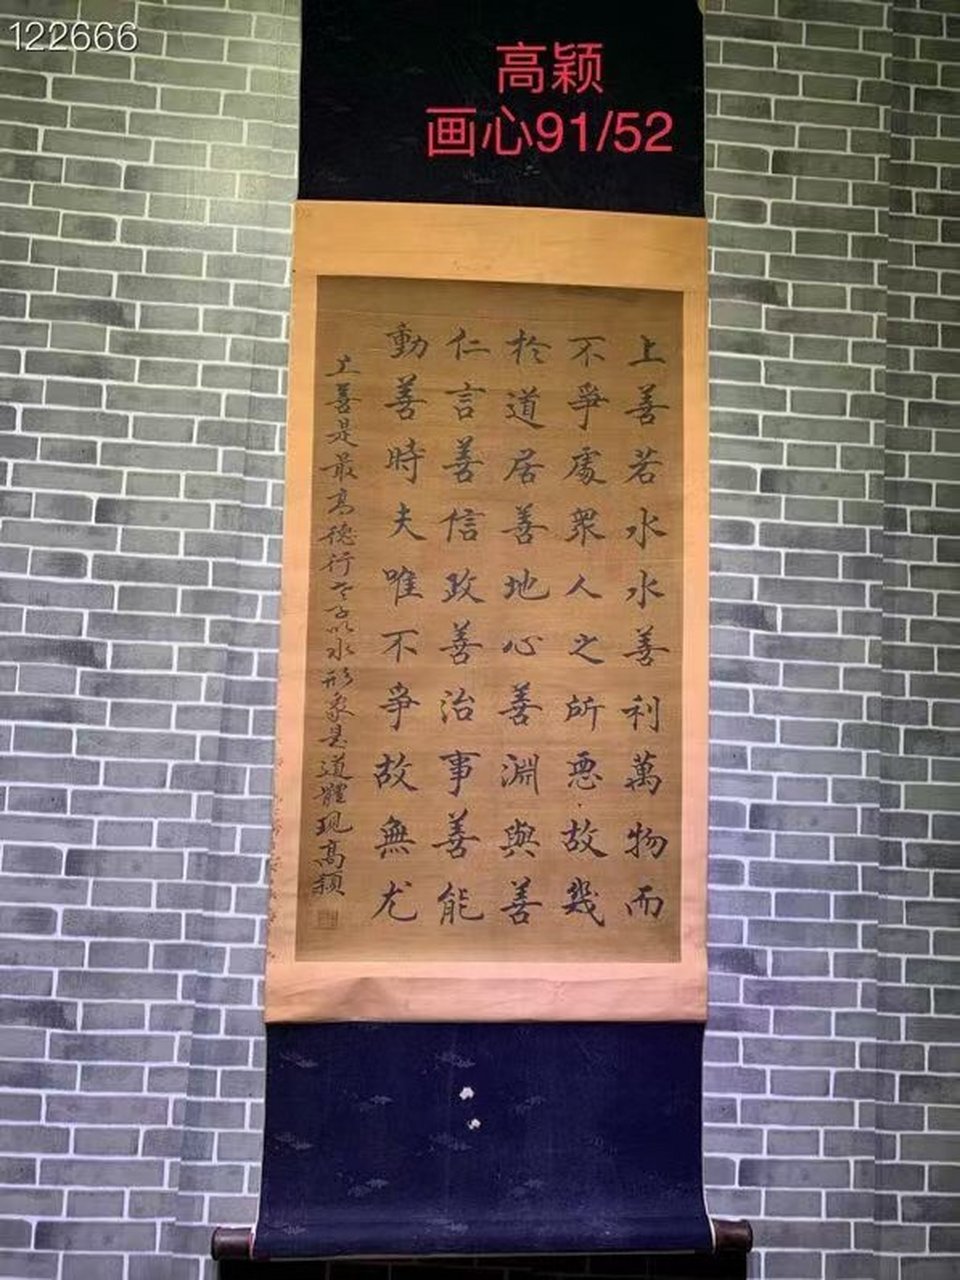 122666
高颖
画心91/52
上善若水水善利萬物而
不爭處衆人之所惡故幾
於道居善地心善淵與善
仁言善信政善治事善能
動善時夫唯不爭故無尤
上善是最高德行老子以水形象是道體現高頴